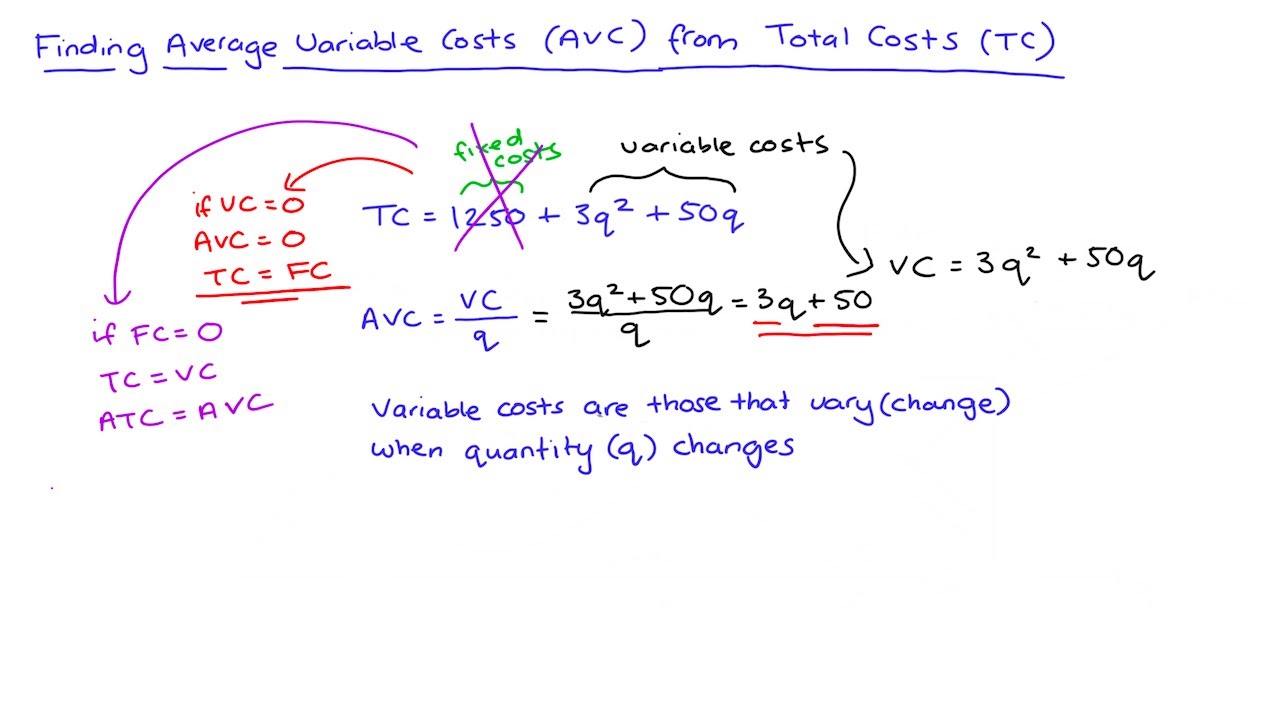 Finding Average Variable Costs (AVC) from Total Costs (TC)
fixed
costs
variable costs
if VC = 0
AVC = 0
TC = FC
TC = 1250 + 3q² + 50q
VC = 3q² + 50q
AVC = VC/q = 3q² + 50q/q = 3q + 50
if FC = 0
TC = VC
ATC = AVC
Variable costs are those that vary (change)
when quantity (q) changes